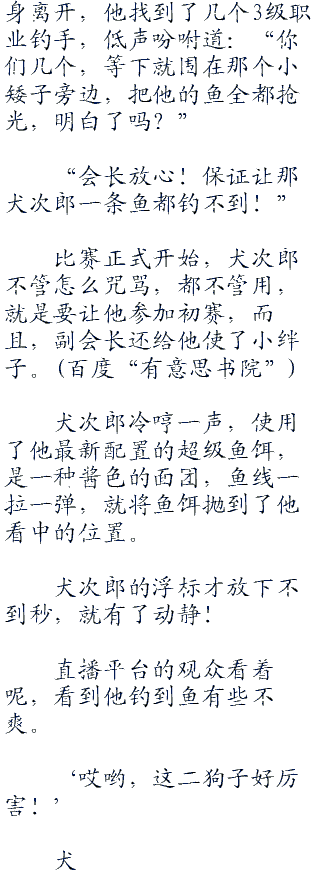 身离开，他找到了几个3级职
业钓手，低声吩咐道：“你
们几个，等下就围在那个小
矮子旁边，把他的鱼全都抢
光，明白了吗？”
“会长放心！保证让那
犬次郎一条鱼都钓不到！”
比赛正式开始，犬次郎
不管怎么咒骂，都不管用，
就是要让他参加初赛，而
且，副会长还给他使了小绊
子。(百度“有意思书院”)
犬次郎冷哼一声，使用
了他最新配置的超级鱼饵，
是一种酱色的面团，鱼线一
拉一弹，就将鱼饵抛到了他
看中的位置。
犬次郎的浮标才放下不
到秒，就有了动静！
直播平台的观众看着
呢，看到他钓到鱼有些不
爽。
‘哎哟，这二狗子好厉
害！’
犬